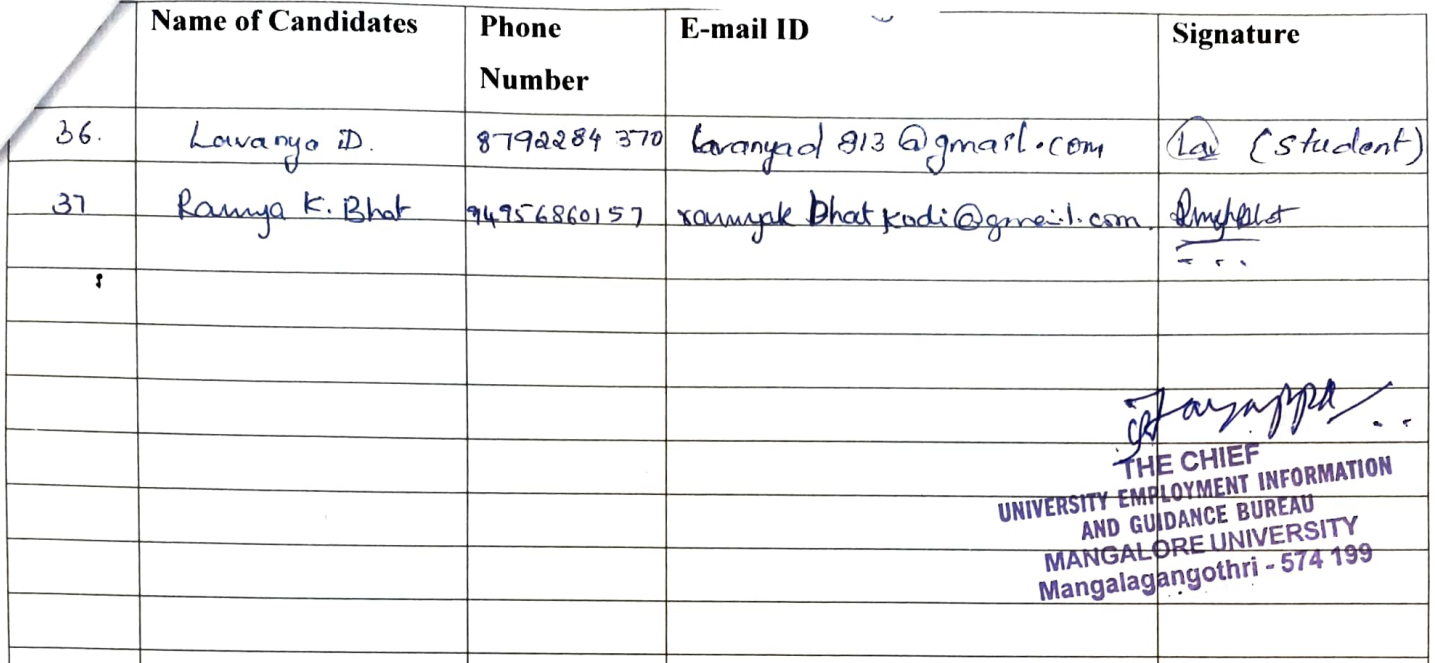 Name of Candidates Phone Number E-mail ID Signature
36. Lavanya D. 8792284 370 lavanyad 913 @gmail.com Lav (student)
37 Ramya K. Bhat 94956860157 ramyak bhat kodi@gmail.com.
THE CHIEF
UNIVERSITY EMPLOYMENT INFORMATION
AND GUIDANCE BUREAU
MANGALORE UNIVERSITY
Mangalagangothri - 574 199